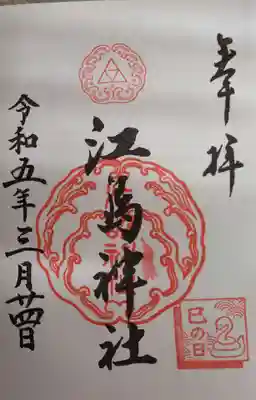 奉拝
江島神社
令和五年三月廿四日
巳の日